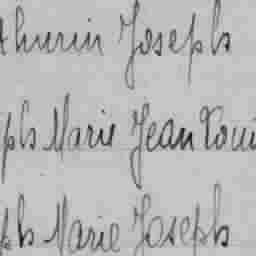 thurin Joseph
ph Marie Jean Loui
ph Marie Joseph